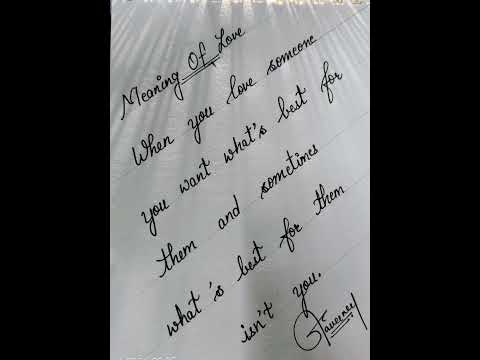 Meaning Of Love
When you love someone
you want what's best for
them and sometimes
what's best for them
isn't you.